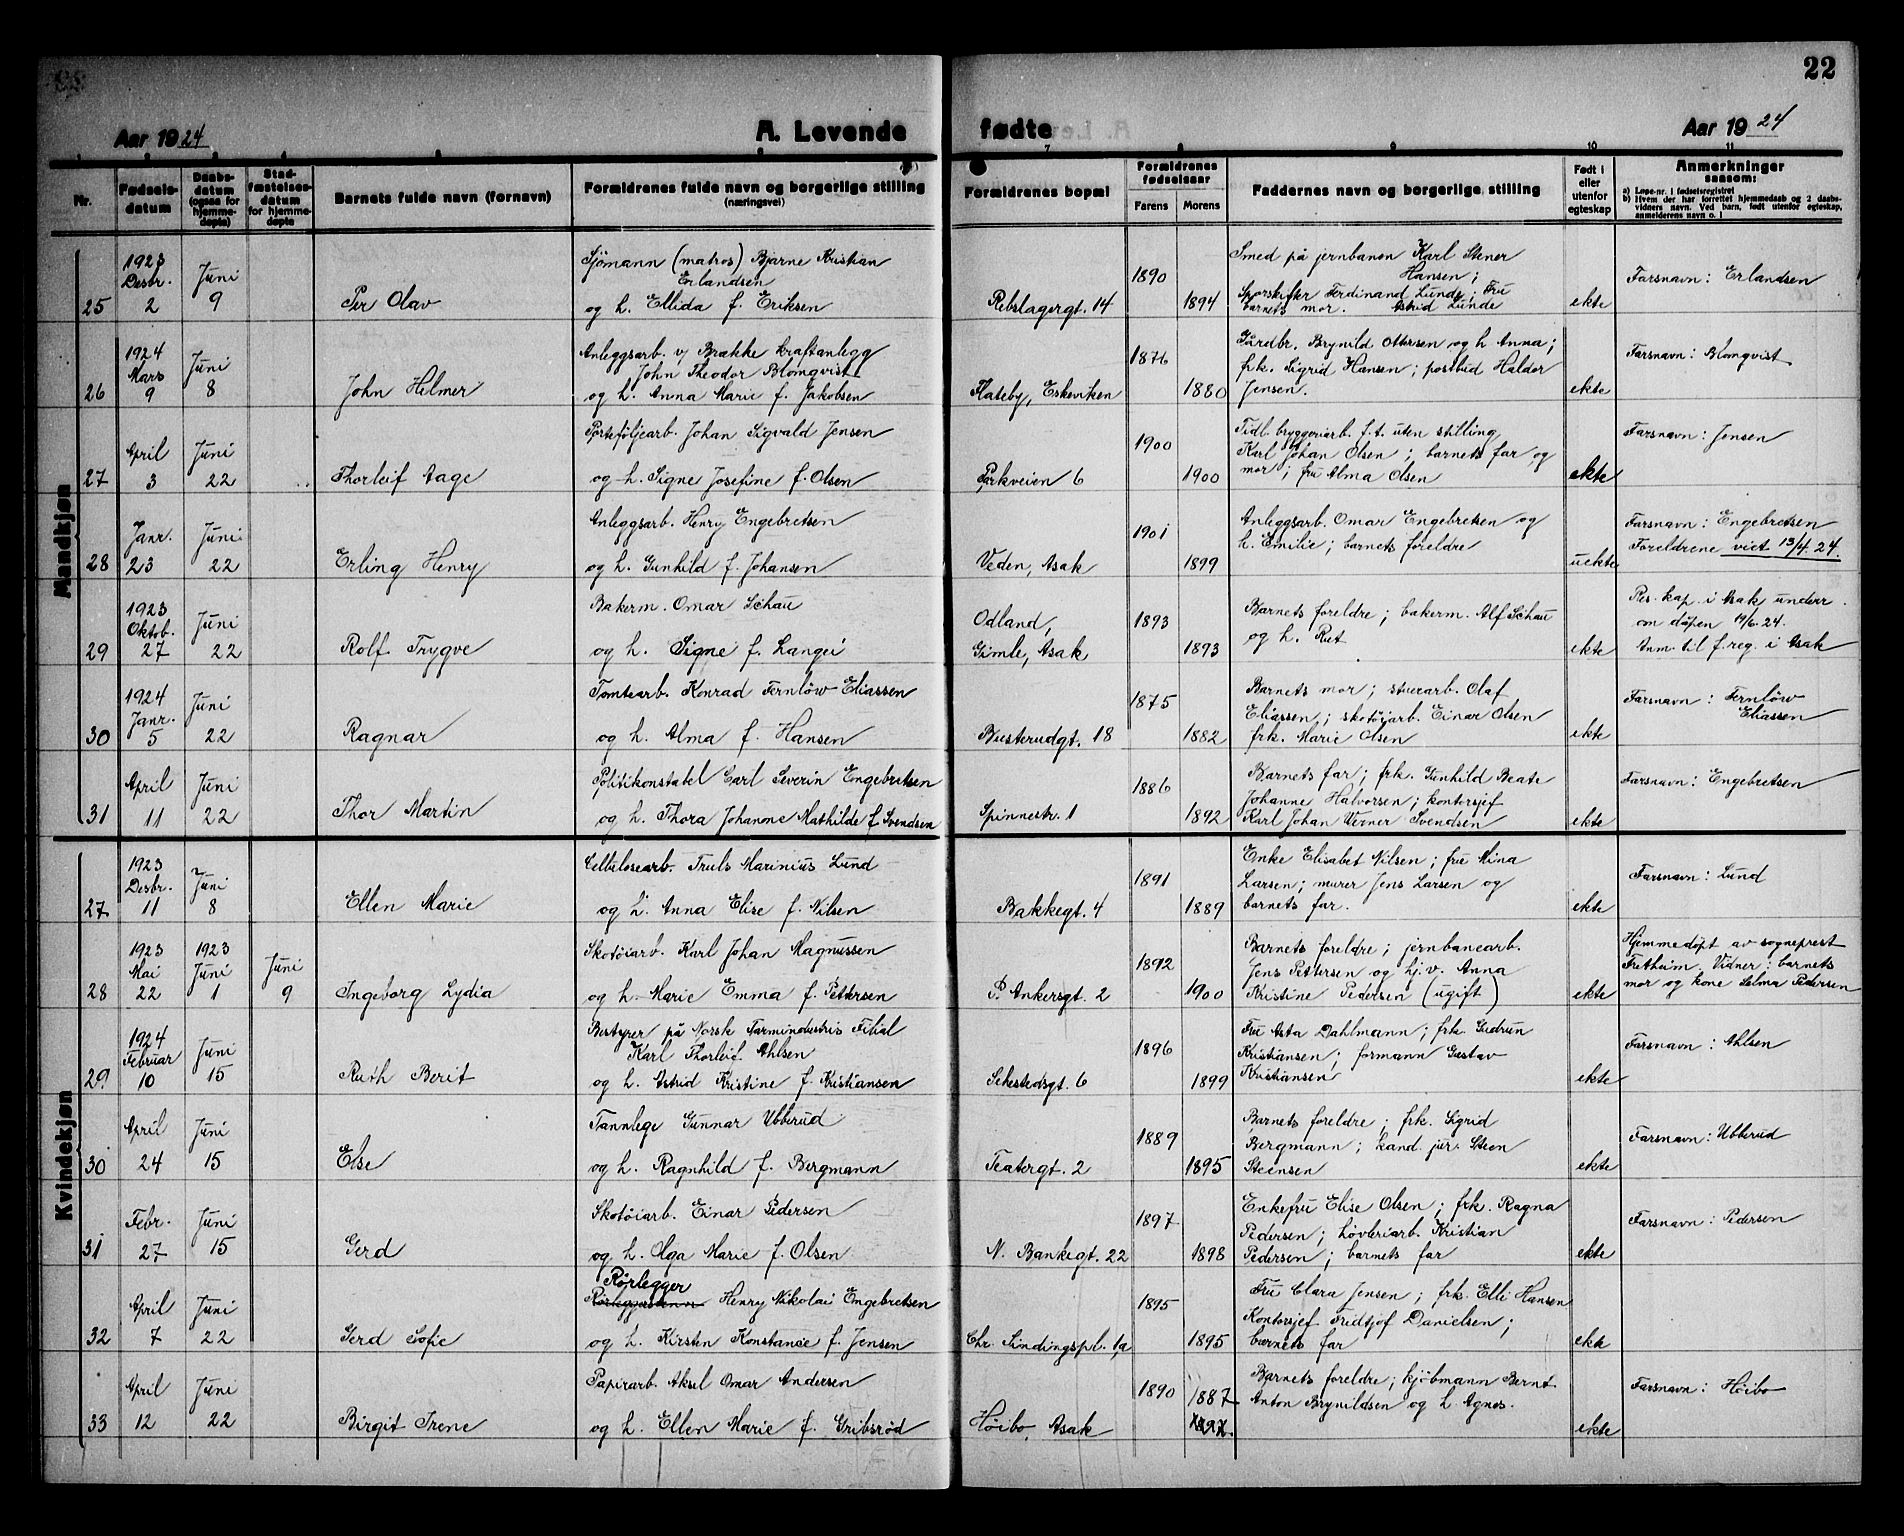 22
Aar 1924
A. Levende
fødte
Aar 1924
Nr.
Fødselsdatum
Daabsdatum (ogsaa for hjemmedøpte)
Stadfæstelsesdatum for hjemmedøpte
Barnets fulde navn (fornavn)
Forældrenes fulde navn og borgerlige stilling (næringsvei)
7 8 9 10 11
Forældrenes bopæl
Forældrenes fødselsaar
Farens Morens
Faddernes navn og borgerlige stilling
Født i eller utenfor egteskap
Anmerkninger saasom:
a) Løpe-nr. i fødselsregistret
b) Hvem der har forrettet hjemmedaab og 2 daabsvidners navn. Ved barn, født utenfor egteskap, anmelderens navn o. l.
Mandkjøn
25 1923 Desbr. 2 Juni 9 Per Olav
Sjømann (matros) Bjarne Kristian Erlandsen
og h. Ellida f. Eriksen
Rebslagergt. 14 1890 1894
Smed på jernbanen Karl Stener
Hansen;
Sporskifter Ferdinand Lunde; Fru
barnets mor. Astrid Lunde
ekte Farsnavn: Erlandsen
26 1924 Mars 9 Juni 8 John Hilmer
Anleggsarb. v/ Brække kraftanlegg
John Theodor Blomqvist
og h. Anna Marie f. Jakobsen
Flateby, Eskeviken 1876 1880
Gårdbr. Brynild Ottersen og h Anna;
frk. Sigrid Hansen; postbud Haldor
Jensen.
ekte Farsnavn: Blomqvist
27 April 3 Juni 22 Thorleif Aage
Porteføljearb. Johan Sigvald Jensen
og h. Signe Josefine f. Olsen
Parkveien 6 1900 1900
Tidl. bryggeriarb. f.t. uten stilling
Karl Johan Olsen; barnets far og
mor; fru Alma Olsen
ekte Farsnavn: Jensen
28 Janr. 23 Juni 22 Erling Henry
Anleggsarb. Henry Engebretsen
og h. Gunhild f. Johansen
Veden, Asak 1901 1899
Anleggsarb. Omar Engebretsen og
h. Emilie; barnets foreldre
uekte Farsnavn: Engebretsen
Foreldrene viet 13/4. 24.
29 1923 Oktob. 27 Juni 22 Rolf Trygve
Bakerm. Omar Schau
og h. Signe f. Langei
Odland,
Gimle, Asak 1893 1893
Barnets foreldre; bakerm. Alf Schau
og h. Rut
ekte Res. kap. i Asak underr.
om dåpen 19/6. 24.
Anm. til f. reg. i Asak
30 1924 Janr. 5 Juni 22 Ragnar
Tomtearb. Konrad Fernlöw Eliassen
og h. Alma f. Hansen
Busterudgt. 18 1875 1882
Barnets mor; stuerarb. Olaf
Eliassen; skotöiarb. Einar Olsen
frk. Marie Olsen
ekte Farsnavn: Fernlöw
Eliassen
31 April 11 Juni 22 Thor Martin
Politikonstabel Carl Severin Engebretsen
og h. Thora Johanne Mathilde f Svendsen
Spinnestr. 1 1886 1892
Barnets far; frk. Gunhild Beate
Johanne Halvorsen; kontorsjef
Karl Johan Verner Svendsen
ekte Farsnavn: Engebretsen
Kvindekjøn
27 1923 Desbr. 11 Juni 8 Ellen Marie
Cellulosearb. Truls Marinius Lund
og h. Anna Elise f. Nilsen
Bakkegt. 4 1891 1889
Enke Elisabet Nilsen; fru Mina
Larsen; murer Jens Larsen og
barnets far.
ekte Farsnavn: Lund
28 1923 Mai 22 1923 Juni 1 Juni 9 Ingeborg Lydia
Skotöiarb. Karl Johan Magnussen
og h. Marie Emma f. Pettersen
P. Ankersgt. 2 1892 1900
Barnets foreldre; jernbanearb.
Jens Pettersen og hj.v. Anna
Kristine Pedersen (ugift)
ekte Hjemmedøpt av sogneprest
Fretheim. Vidner: barnets
mor og kone Selma Pedersen
29 1924 Februar 10 Juni 15 Ruth Berit
Bestyrer på Norsk Tarmindustris Filial
Karl Thorleif Ahlsen
og h. Astrid Kristine f. Kristiansen
Sehestedsgt. 6 1896 1899
Fru Asta Dahlmann; frk. Gudrun
Kristiansen; formann Gustav
Kristiansen
ekte Farsnavn: Ahlsen
30 April 24 Juni 15 Else
Tannlege Gunnar Ubberud
og h. Ragnhild f. Bergmann
Teatergt. 2 1889 1895
Barnets foreldre; frk. Sigrid
Bergmann; kand. jur. Steen
Steensen
ekte Farsnavn: Ubberud
31 Febr. 27 Juni 15 Gerd
Skotöiarb. Einar Pedersen
og h. Olga Marie f. Olsen
N. Bankegt. 22 1897 1898
Enkefru Elise Olsen; frk. Ragna
Pedersen; høvleriarb. Kristian
Pedersen; barnets far
ekte Farsnavn: Pedersen
32 April 7 Juni 22 Gerd Sofie
Rørlegger
Henry Nikolai Engebretsen
og h. Kirsten Konstanse f. Jensen
Chr. Sindingspl. 1a 1895 1895
Fru Clara Jensen; frk. Elli Hansen
Kontorsjef Fridtjof Danielsen;
barnets far
ekte
33 April 12 Juni 22 Birgit Irene
Papirarb. Aksel Omar Andersen
og h. Ellen Marie f. Gribsrød
Höibo, Asak 1890 1887
Barnets foreldre; kjøbmann Bernt
Anton Brynildsen og h Agnes.
ekte Farsnavn: Höibo